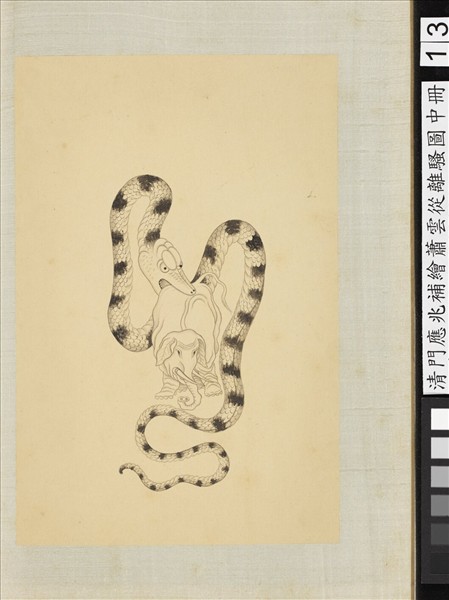 13
清門應兆補繪蕭雲從離騷圖中冊